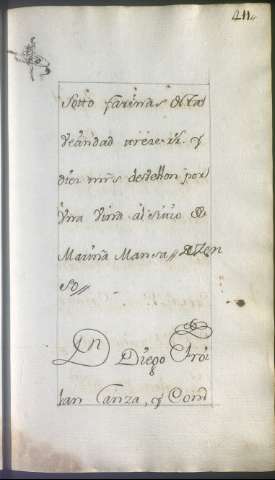 211
Sotto farinas de la
Veandad trese rs. y
diez mrs de vellon por
Una Viña al sitio de
Marina Mansa // de Zen
so //
Dn Diego Froi
lan Tanza, y Cond